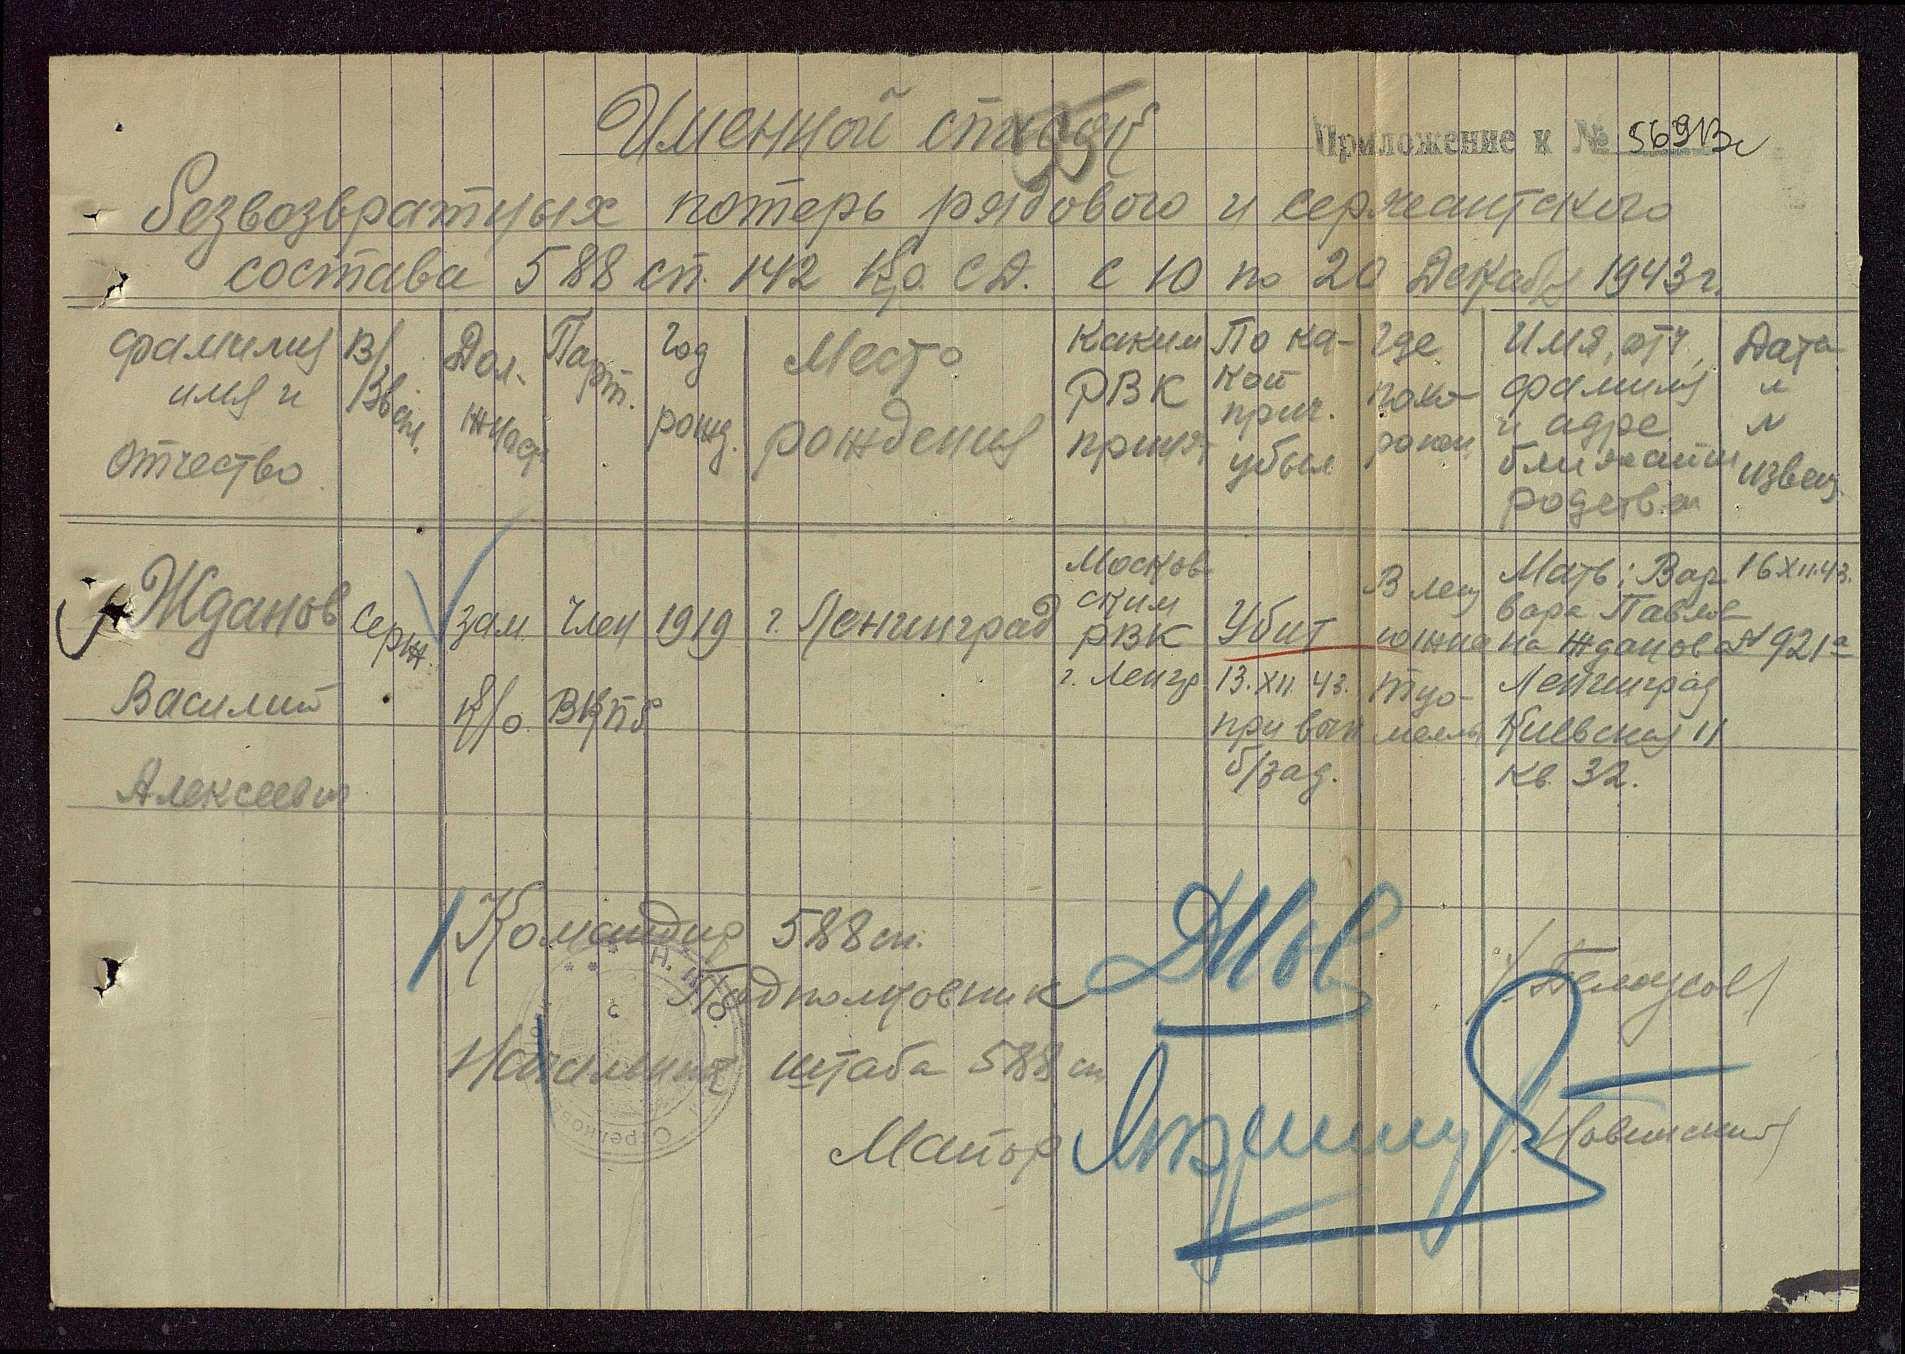 Именной список
Приложение к № 5691Зс
безвозвратных потерь рядового и сержантского
состава 588 сп. 142 Кр. СД. с 10 по 20 Декабря 1943 г.
фамилия имя и отчество
В/Звan.
Должност
Парт.
Год рожд.
Место рождения
Каким РВК призв
По какой прич. убыл
Где похоронен
Имя, отч, фамилия и адре ближайш родствен
Дата и № извещ.
Жданов
Василий
Алексеевич
серж.
зам.
к/о
Член
ВКПб
1919
г. Ленинград
Московским
РВК
г. Ленгр
Убит
13.XII.43.
при вып
б/зад.
Мать: Варвара Павловна Жданова
Ленинград
Киевская 11
кв. 32.
16.XII.43.
№ 921а
Командир 588 сп.
Подполковник
/Белоусов/
Начальник штаба 588 сп
Майор
/Новинский/